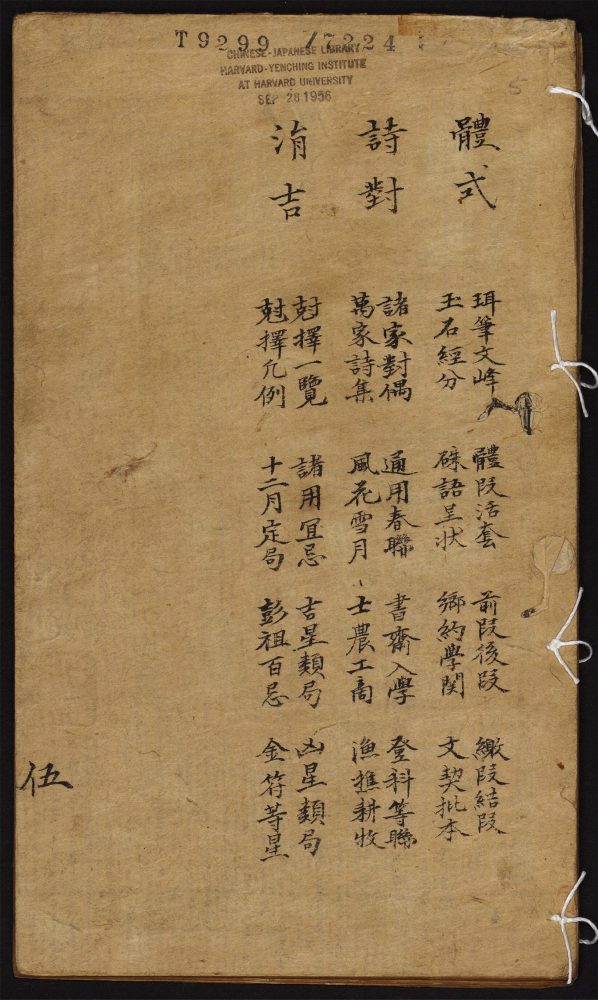 T9299 /7224
CHINESE-JAPANESE LIBRARY
HARVARD-YENCHING INSTITUTE
AT HARVARD UNIVERSITY
SEP 28 1956
5
體式
珥筆文峰 體段活套 前段後段 繳段結段
玉石經分 硃語呈狀 鄉約學関 文契批本
詩對
諸家對偶 通用春聯 書齋入學 登科等聯
萬家詩集 風花雪月 士農工商 漁樵耕牧
涓吉
尅擇一覽 諸用宜忌 吉星類局 凶星類局
尅擇凡例 十二月定局 彭祖百忌 金符等星
伍